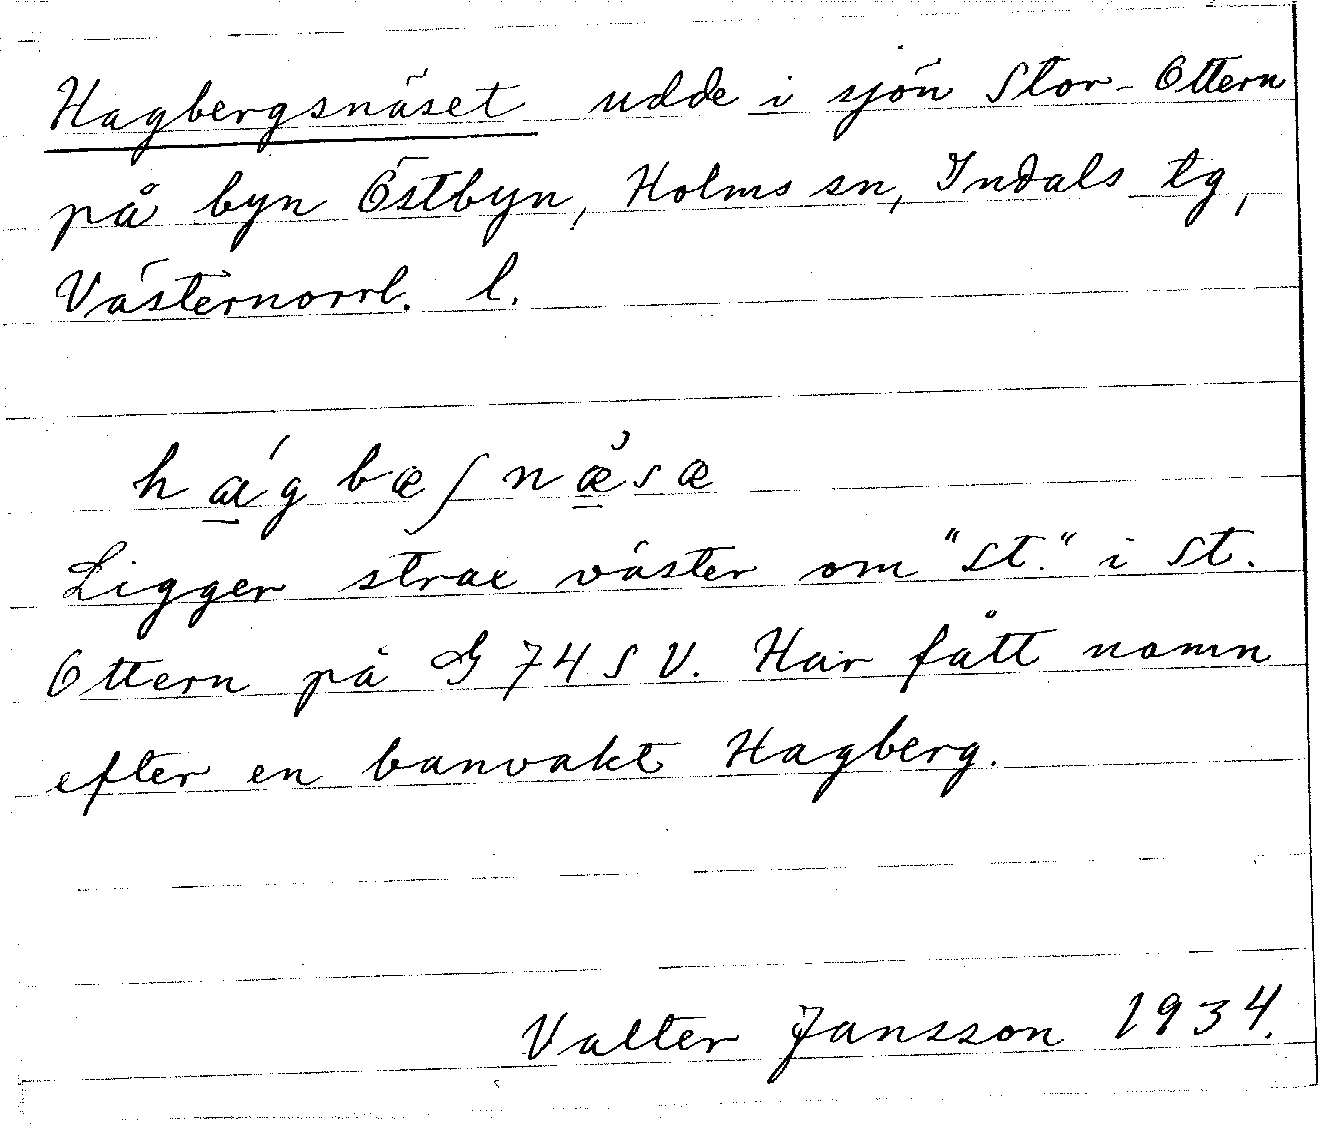 Hagbergsnäset udde i sjön Stor-Ottern
på byn Östbyn, Holms sn, Indals tg,
Västernorrl. l.
Ligger strax väster om "St." i St.
Ottern på G 74 S V. Har fått namn
efter en banvakt Hagberg.
Valter Jansson 1934.